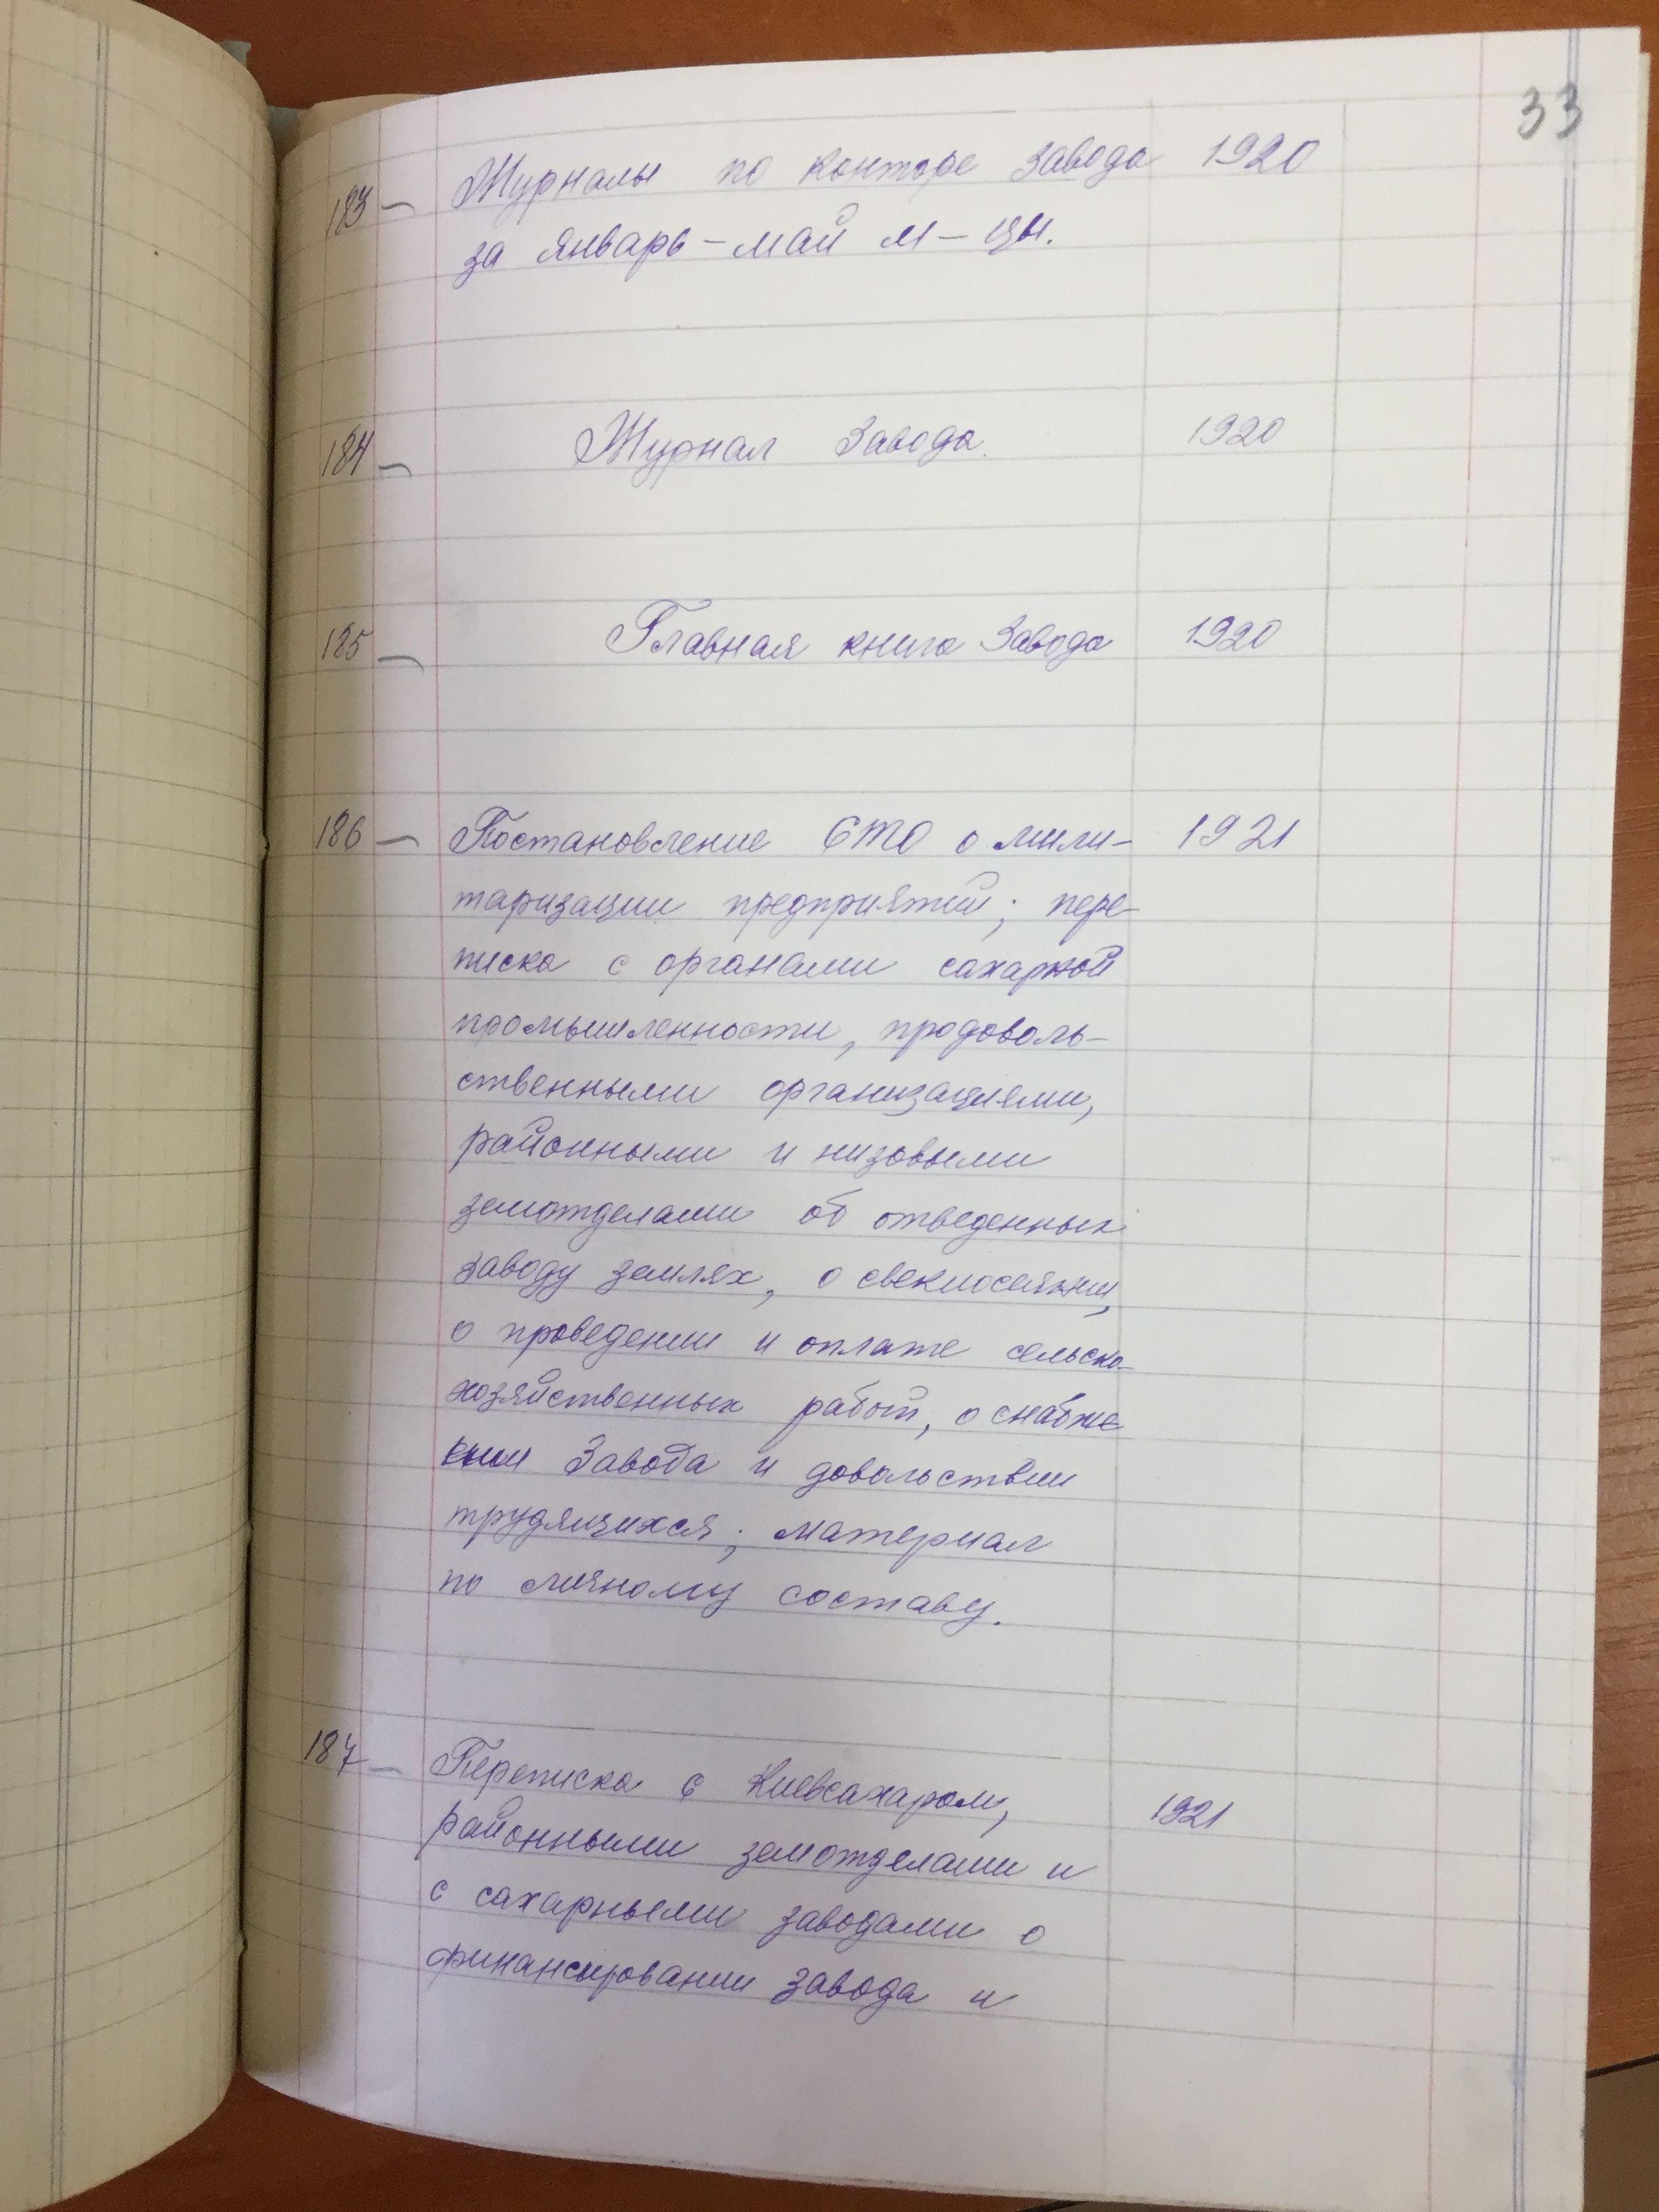 33
183 — Журналы по конторе завода 1920
за январь – май м – цы.
184 — Журнал завода. 1920
185 — Главная книга завода 1920
186 — Постановление СТО о мили- 1921
таризации предприятий; пере-
писка с органами сахарной
промышленности, продоволь-
ственными организациями,
районными и низовыми
земотделами об отведенных
заводу землях, о свеклосеянии,
о проведении и оплате сельско-
хозяйственных работ, о снабже
нии завода и довольствии
трудящихся; материал
по личному составу.
187 — Переписка с Киевсахаром,
районными земотделами и 1921
с сахарными заводами о
финансировании завода и